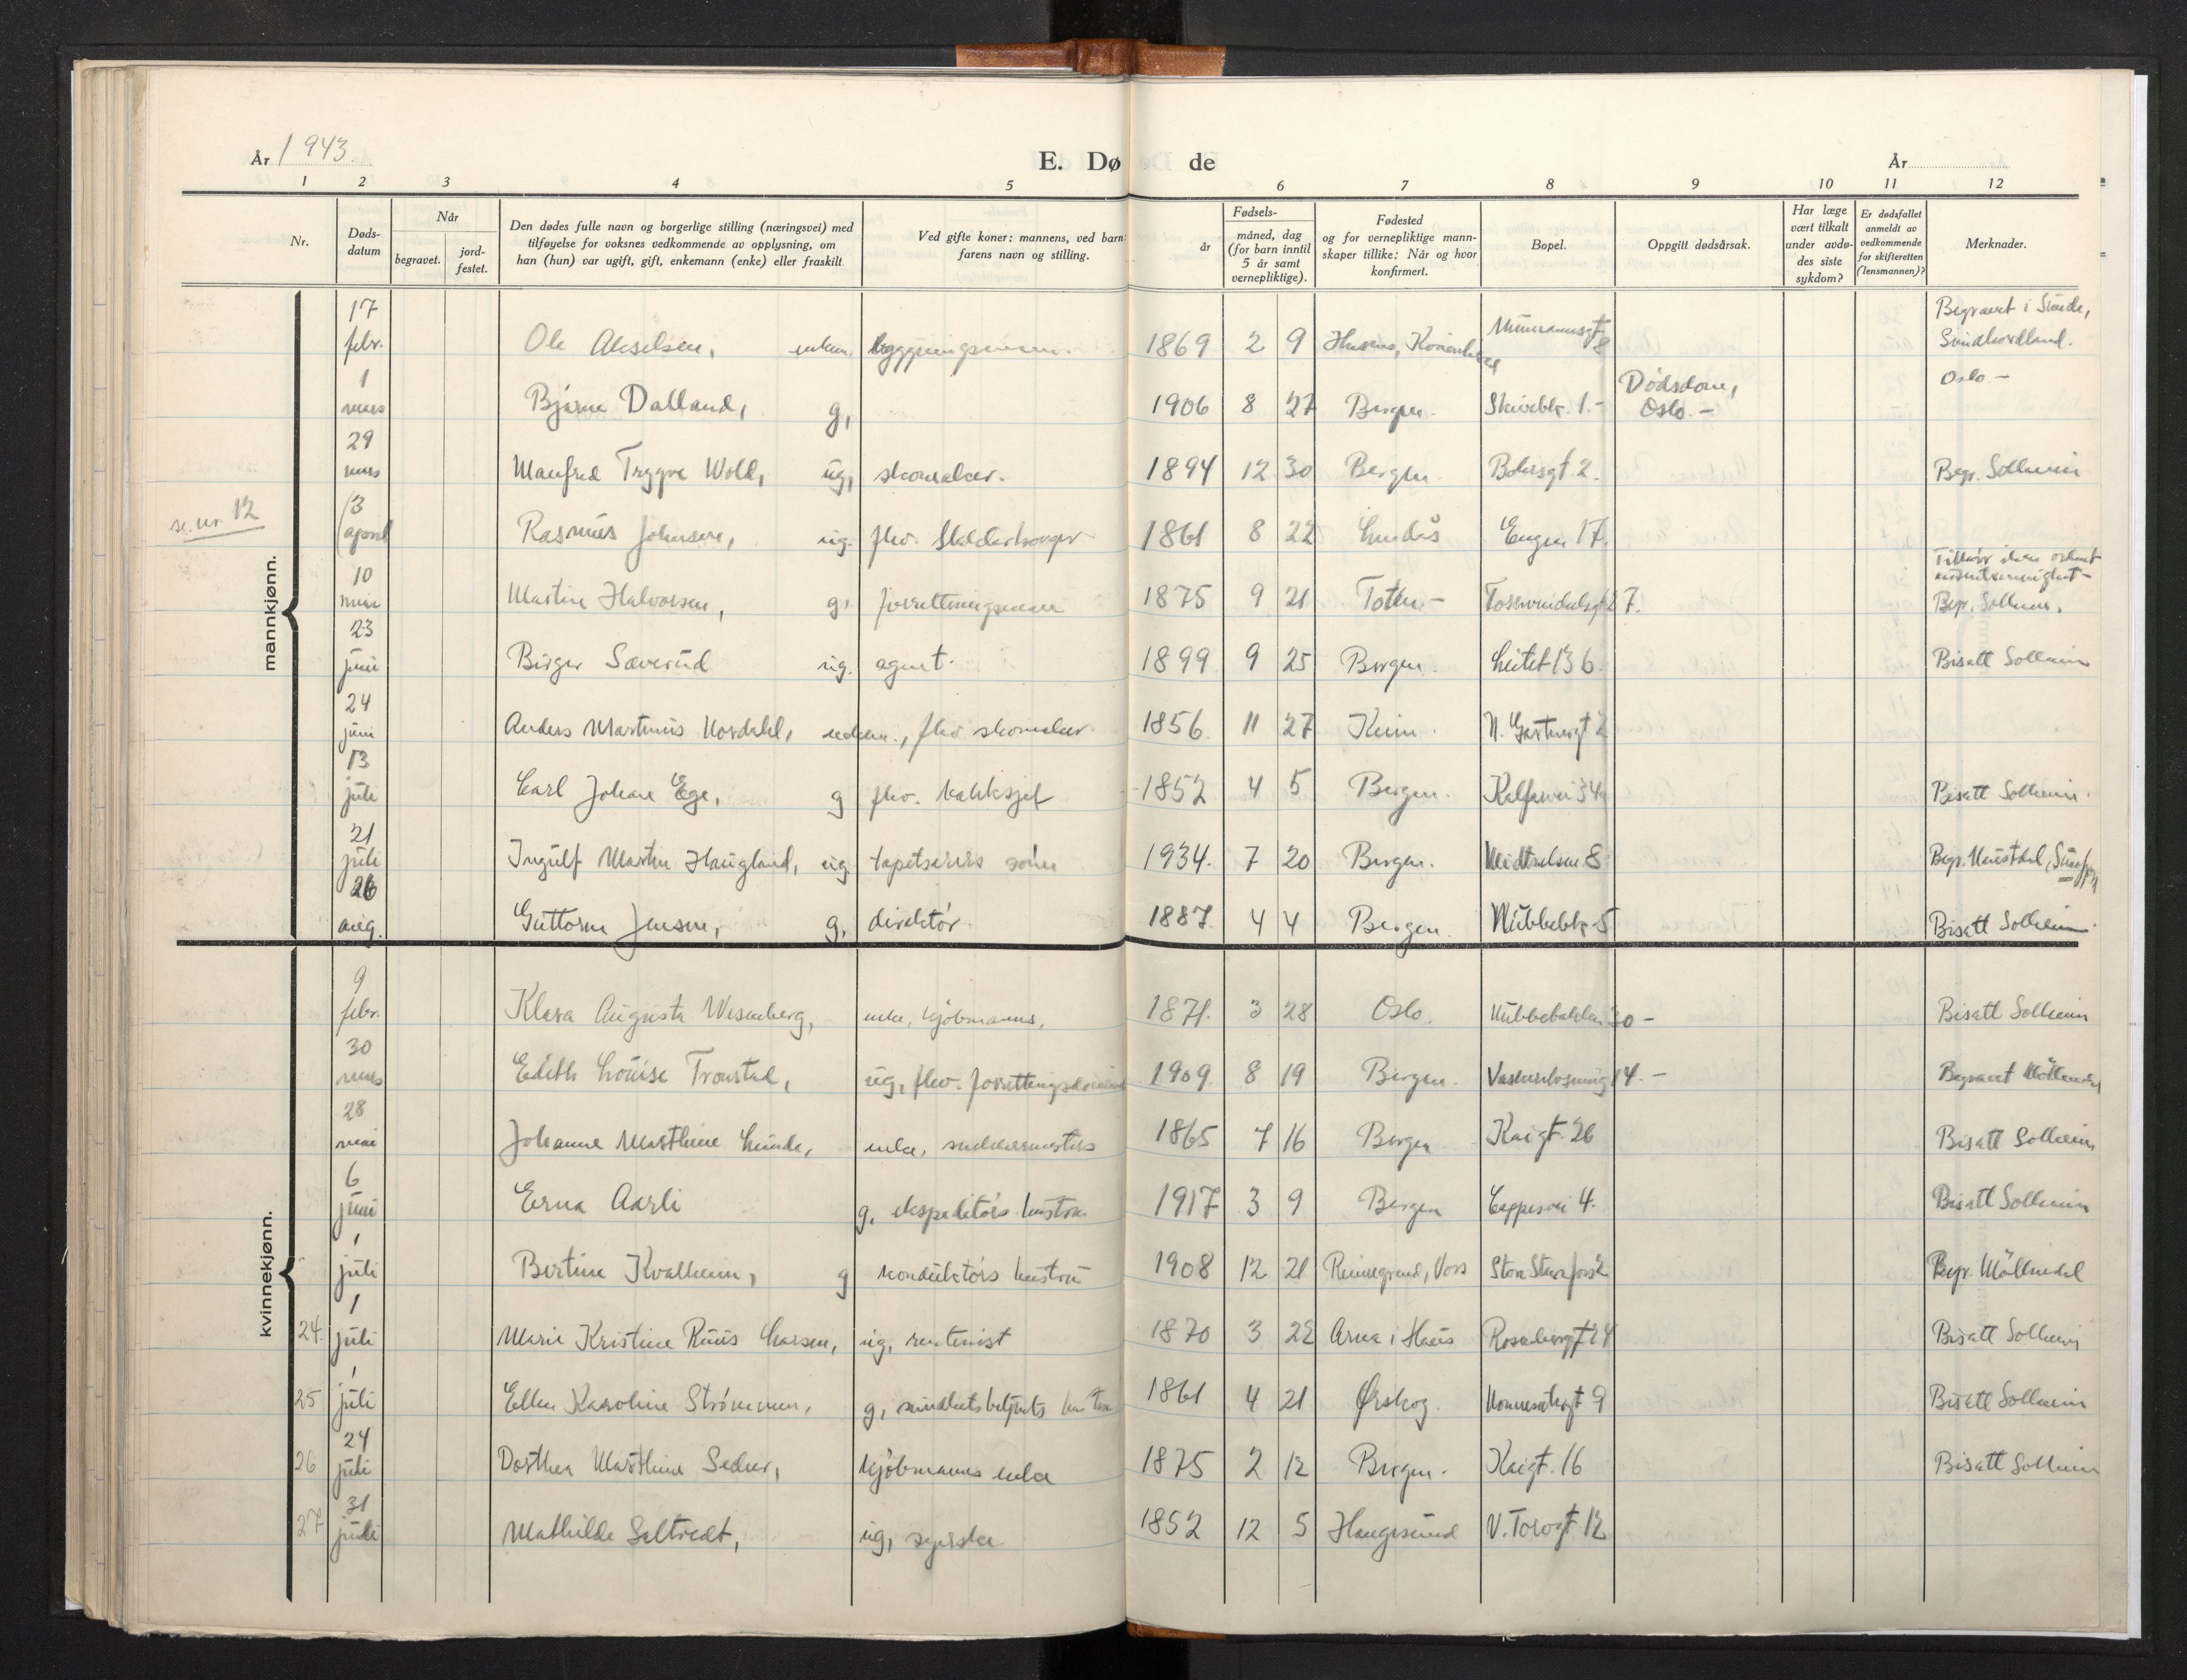 År 1943.
E. Dø de
År
1 2 3 4 5 6 7 8 9 10 11 12
Nr.
Døds-
datum
Når
begravet.
jord-
festet.
Den dødes fulle navn og borgerlige stilling (næringsvei) med
tilføyelse for voksnes vedkommende av opplysning, om
han (hun) var ugift, gift, enkemann (enke) eller fraskilt.
Ved gifte koner: mannens, ved barn:
farens navn og stilling.
år
Fødsels-
måned, dag
(for barn inntil
5 år samt
vernepliktige).
Fødested
og for vernepliktige mann-
skaper tillike: Når og hvor
konfirmert.
Bopel.
Oppgitt dødsårsak.
Har læge
vært tilkalt
under avdø-
des siste
sykdom?
Er dødsfallet
anmeldt av
vedkommende
for skifteretten
(lensmannen)?
Merknader.
mannkjønn.
17 febr. Ole Akselsen, enkem. 1869 2 9 8 Begravet i Sunde,
Sundhordland.
1 mars Bjarne Dalland, g, 1906 8 27 Bergen. Skiveblk. 1.- Dødsdom,
Oslo.- Oslo.-
29 mars Manfred Trygve Wold, ug, skomaker. 1894 12 30 Bergen. 2. Begr. Solheim
se nr. 12 (3 april Rasmus Johnsen, ug. fhv. 1861 8 22 Lindås Engen 17.
10 mai Martin Halvorsen, g, forretningsmann 1875 9 21 Toten- 27. Tilhører ikke
Begr. Solheim.
23 juni Birger Sæverud ug. agent. 1899 9 25 Bergen. Leitet 13 b. Bisatt Solheim
24 juni Anders Martinus Nordahl, enkem., fhv. skomaker. 1856 11 27 Kinn. 2
13 juli Carl Johan Ege, g fhv. 1852 4 5 Bergen. Kalfarvei 34 Bisatt Solheim.
21 juli Ingulf Martin Haugland, ug. tapetserers sønn 1934. 7 20 Bergen. 8 Begr. Naustdal,
26 aug. Guttorm Jensen, g, direktør. 1887. 4 4 Bergen. Nubbebk. 5 Bisatt Solheim
kvinnekjønn.
9 febr. Klara Augusta Wesenberg, enke, kjøbmanns, 1871. 3 28 Oslo. Nubbebakken 30- Bisatt Solheim
30 mars Edith Louise Tronstad, ug, fhv. 1909. 8 19 Bergen. 14.- Begravet Møllendal
28 mai Johanne Marthine Lunde, enke, snekkermesters 1865 7 16 Bergen Kaigt. 26 Bisatt Solheim
6 juni Erna Aarli g, ekspeditørs hustru 1917 3 9 Bergen 4. Bisatt Solheim
1 juli Bertine Kvalheim, g konduktørs hustru 1908 12 21 Voss 2 Begr. Møllendal
24. 1 juli Marie Kristine Ruus Larsen, ug, rentenist 1870 3 22 Arna i Haus Rosenbergt 14 Bisatt Solheim
25 1 juli Ellen Karoline Strømmen, g, hustru 1861 4 21 Ørskog. 9 Bisatt Solheim
26 24 juli Dorthea Marthine kjøbmanns enke 1875 2 12 Bergen. Kaigt. 16 Bisatt Solheim
27 31 juli Mathilde Seltvedt, ug, syerske 1852 12 5 Haugesund V. Torvgt 12